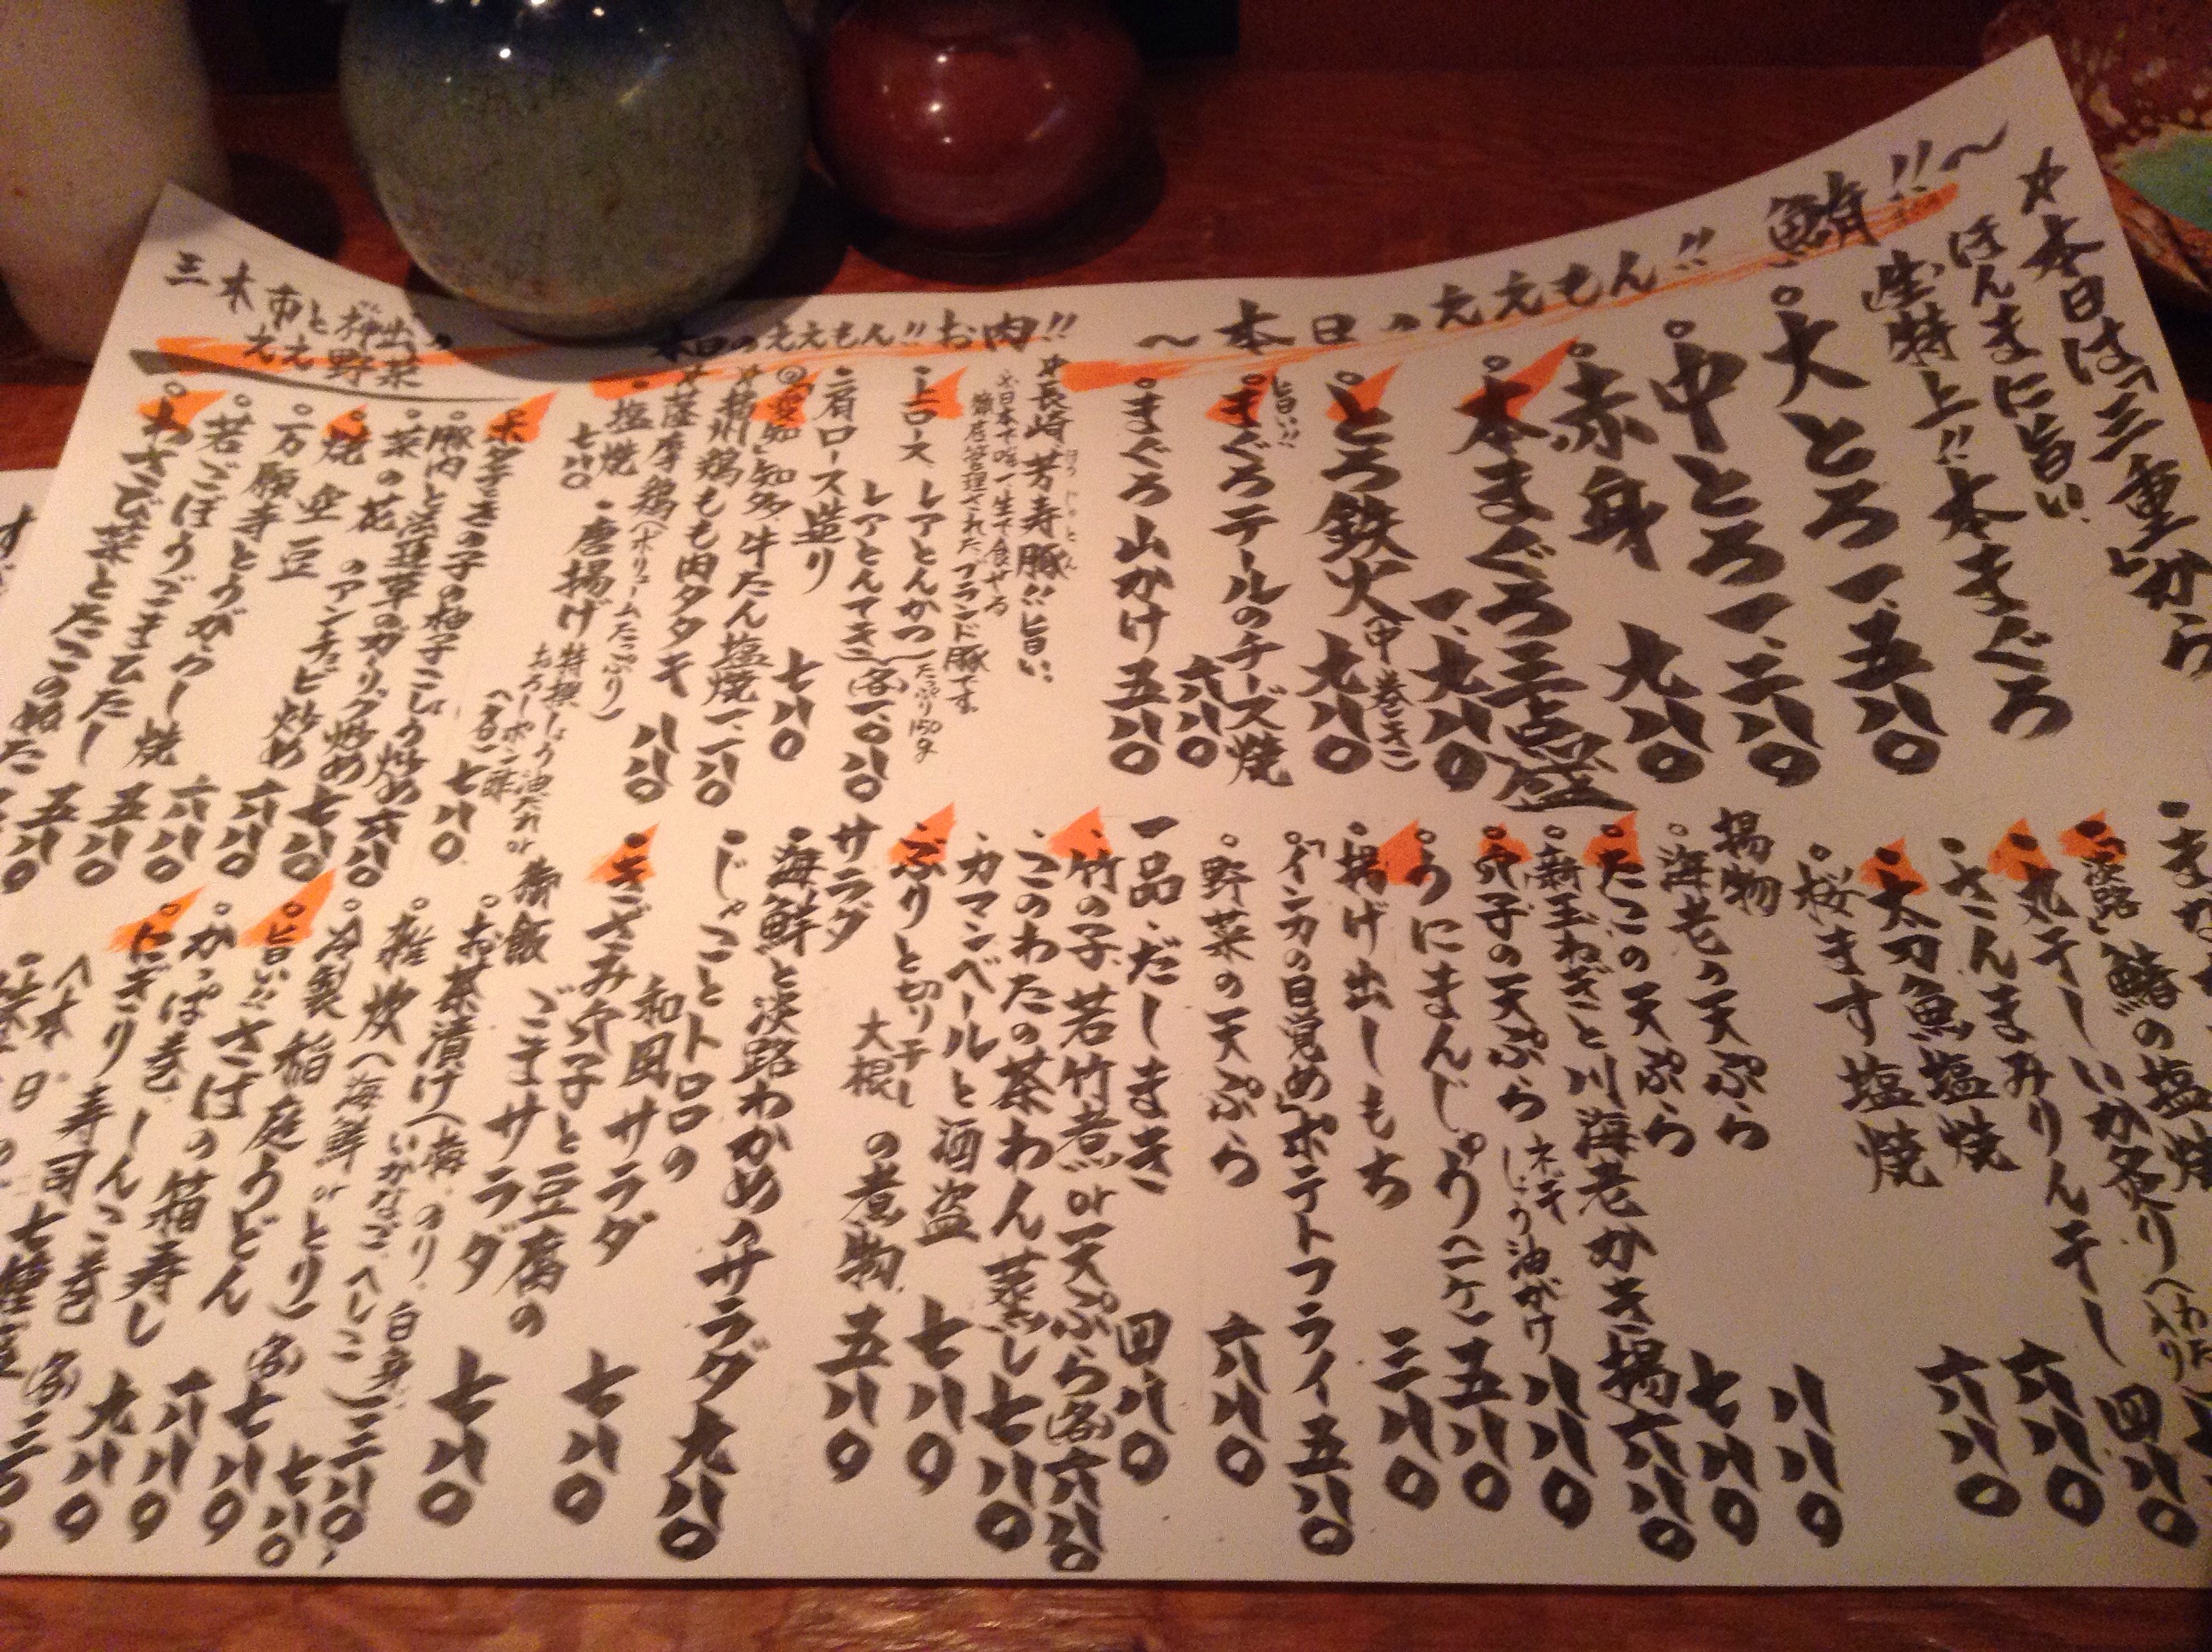 ☆本日は「三重」から
ほんまに旨い
生特上!!本まぐろ
鮪!!〜
〜本日のええもん!!
大とろ 一、五八〇
中とろ 一、二八〇
赤身 九八〇
本まぐろ三点盛 一、九八〇
とろ鉄火(中巻き) 九八〇
旨い!!
まぐろテールのチーズ焼 六八〇
まぐろ山かけ 五八〇
ええもん!!お肉!!
☆長崎 芳寿豚!!旨い
ほうじゅとん
☆日本で唯一、生で食せる
管理されたブランド豚です。
上ロース レアとんかつ
レアとんてき (各)一、〇八〇
たっぷり150g
肩ロース造り 七八〇
「愛知」知多牛たん塩焼 一、二八〇
鶏もも肉タタキ 八八〇
☆薩摩鶏(ボリュームたっぷり)
塩焼 七八〇
唐揚げ 特撰しょう油だれ or おろしポン酢
三木市と
ええ野菜
木の子の柚子こしょう炒め 七八〇
豚肉と法蓮草のガーリック炒め 六八〇
菜の花のアンチョビ炒め 七八〇
焼 空豆 六八〇
万願寺とうがらし焼 六八〇
若ごぼうごまひたし 五八〇
わさび菜とたこのぬた 五八〇
「淡路」鰆の塩焼
丸干しいか炙り(わた入り) 四八〇
さんまみりん干し 六八〇
太刀魚塩焼
桜ます塩焼 六八〇
揚物
海老の天ぷら 八八〇
たこの天ぷら 七八〇
新玉ねぎと川海老かき揚 六八〇
穴子の天ぷら ネギしょう油がけ 八八〇
うにまんじゅう(二ケ) 五八〇
揚げ出しもち 三八〇
「インカの目覚め」ポテトフライ 五八〇
野菜の天ぷら 六八〇
一品
だしまき 四八〇
竹の子 若竹煮 or 天ぷら (各)六八〇
このわたの茶わん蒸し 七八〇
カマンベールと酒盗 七八〇
ぶりと切り干し大根の煮物 五八〇
サラダ
海鮮と淡路わかめのサラダ 九八〇
じゃことトロロの和風サラダ 七八〇
きざみ穴子と豆腐のごまサラダ 七八〇
御飯
お茶漬け(梅、のり、白身、いかなご、へしこ) 三八〇
雑炊(海鮮 or とり) 七八〇
冷製 稲庭うどん (各)七八〇
旨い!!さばの箱寿し 六八〇
かっぱ巻 しんこ巻
にぎり寿し 九八〇